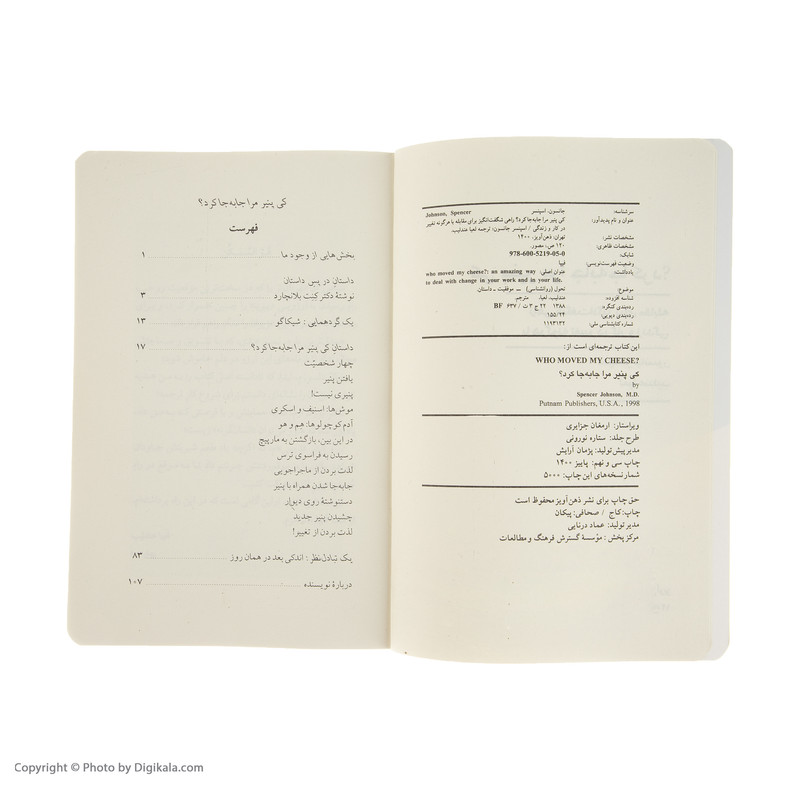 سرشناسه: جانسون، اسپنسر Johnson, Spencer
عنوان و نام پدیدآور: کی پنیر مرا جابه‌جا کرد؟ راهی شگفت‌انگیز برای مقابله با هرگونه تغییر
در کار و زندگی / اسپنسر جانسون؛ ترجمه لعبا عندلیب.
مشخصات نشر: تهران، ذهن‌آویز، ۱۴۰۰
مشخصات ظاهری: ۱۲۰ ص، مصور.
شابک: 978-600-5219-05-0
وضعیت فهرست‌نویسی: فیپا
یادداشت: عنوان اصلی: who moved my cheese?: an amazing way
to deal with change in your work and in your life.
موضوع: تحول (روانشناسی) ــ موفقیت ــ داستان
شناسه افزوده: عندلیب، لعبا، مترجم
رده‌بندی کنگره: ۱۳۸۸ ۲۲ ج ۳ ت / ۶۳۷ BF
رده‌بندی دیویی: ۱۵۵/۲۴
شماره کتابشناسی ملی: ۱۱۹۳۱۳۲
این کتاب ترجمه‌ای است از:
WHO MOVED MY CHEESE?
کی پنیر مرا جابه‌جا کرد؟
by
Spencer Johnson, M.D.
Putnam Publishers, U.S.A., 1998
ویراستار: ارمغان جزایری
طرح جلد: ستاره نورونی
مدیر پیش‌تولید: پژمان آرایش
چاپ سی و نهم: پاییز ۱۴۰۰
شمار نسخه‌های این چاپ: ۵۰۰۰
حق چاپ برای نشر ذهن‌آویز محفوظ است
چاپ: کاج / صحافی: پیکان
مدیر تولید: عماد درنایی
مرکز پخش: مؤسسهٔ گسترش فرهنگ و مطالعات
کی پنیر مرا جابه‌جا کرد؟
فهرست
بخش‌هایی از وجود ما ۱
داستان در پس داستان
نوشتهٔ دکتر کنت بلانچارد ۳
یک گردهمایی: شیکاگو ۱۳
داستان کی پنیر مرا جابه‌جا کرد؟ ۱۷
چهار شخصیّت
یافتن پنیر
پنیری نیست!
موش‌ها: اسنیف و اسکری
آدم کوچولوها: هم و هو
در این بین، بازگشتن به مارپیچ
رسیدن به فراسوی ترس
لذت بردن از ماجراجویی
جابه‌جا شدن همراه با پنیر
دستنوشتهٔ روی دیوار
چشیدن پنیر جدید
لذت بردن از تغییر!
یک تبادل‌نظر: اندکی بعد در همان روز ۸۳
دربارهٔ نویسنده ۱۰۷
Copyright © Photo by Digikala.com